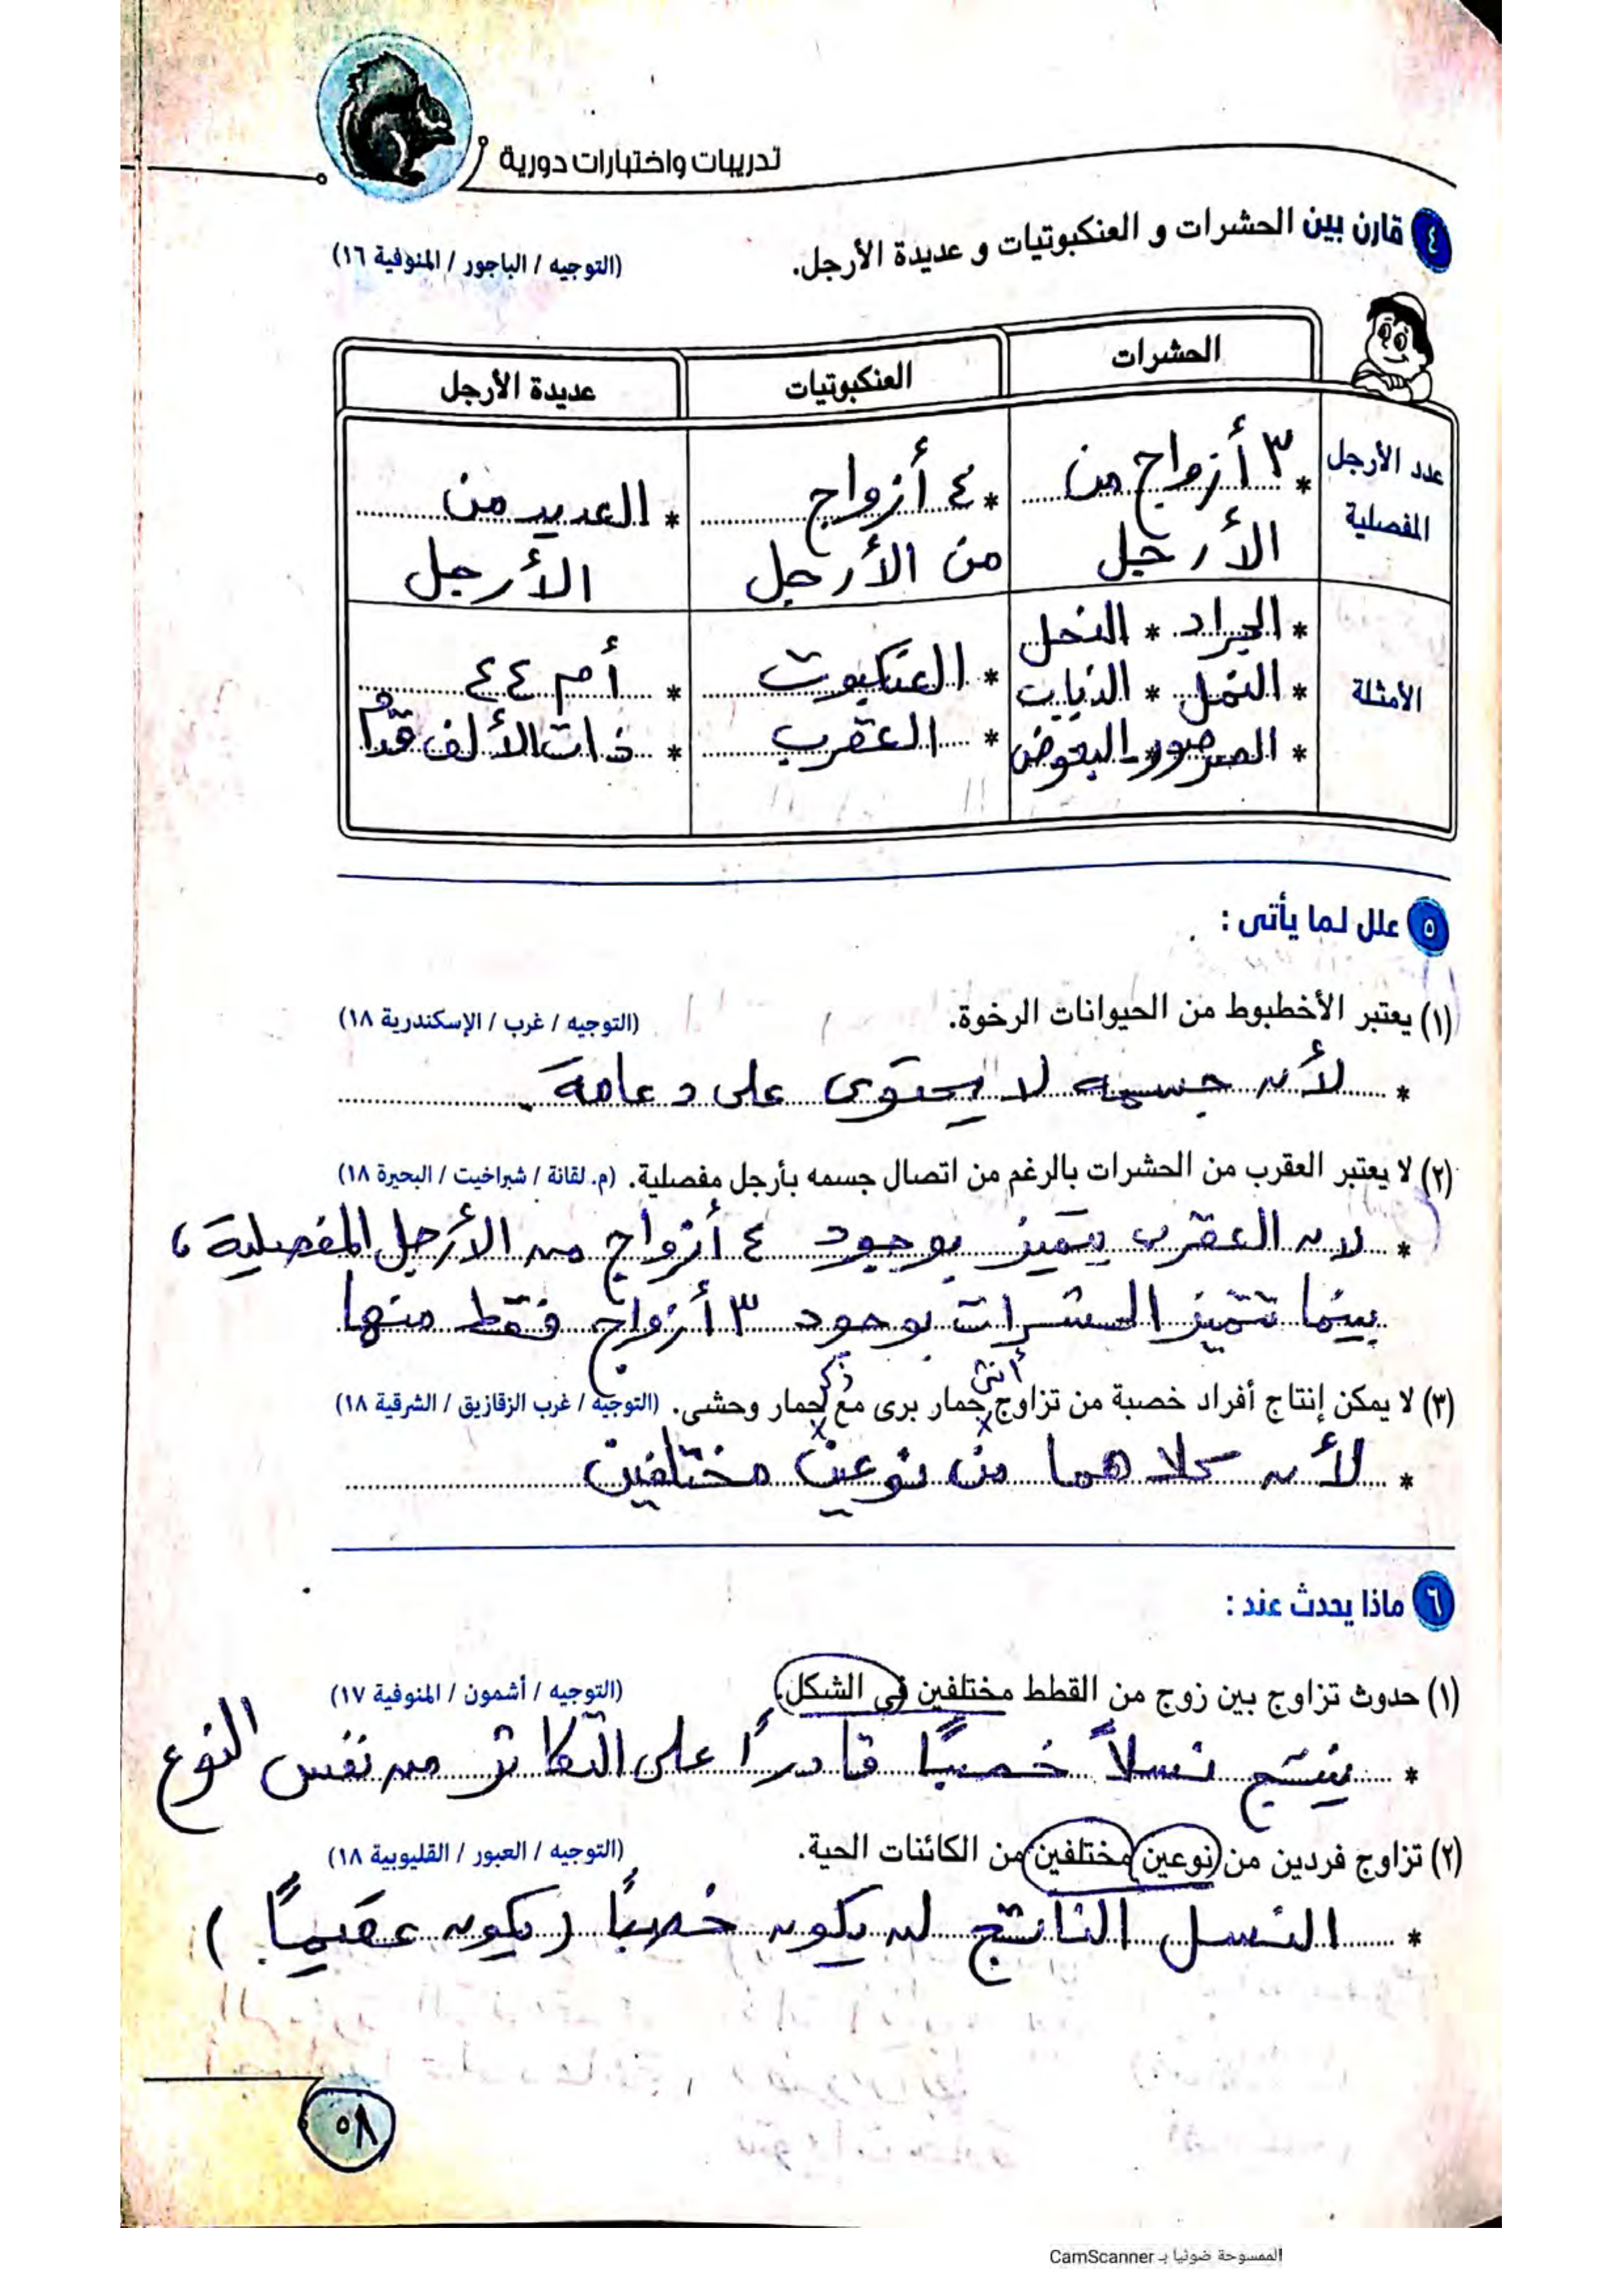 تدريبات واختبارات دورية
٤ قارن بين الحشرات و العنكبوتيات و عديدة الأرجل. (التوجيه / الباجور / المنوفية ١٦)
الحشرات العنكبوتيات عديدة الأرجل
عدد الأرجل المفصلية
* ٣ أزواج من
الأرجل
* ٤ أزواج
من الأرجل
* العديد من
الأرجل
الأمثلة
* الجراد * النحل
* النمل * الذباب
* الصرصور * البعوض
* العنكبوت
* العقرب
* أم ٤٤
* ذات الألف قدم
٥ علل لما يأتى :
(١) يعتبر الأخطبوط من الحيوانات الرخوة. (التوجيه / غرب / الإسكندرية ١٨)
* لأن جسمه لا يحتوى على دعامة.
(٢) لا يعتبر العقرب من الحشرات بالرغم من اتصال جسمه بأرجل مفصلية. (م. لقانة / شبراخيت / البحيرة ١٨)
* لان العقرب يتميز بوجود ٤ أزواج من الأرجل المفصلية،
بينما تتميز الحشرات بوجود ٣ أزواج فقط منها
أنثى ذكر
(٣) لا يمكن إنتاج أفراد خصبة من تزاوج حمار برى مع حمار وحشى. (التوجيه / غرب الزقازيق / الشرقية ١٨)
* لأن كلا هما من نوعين مختلفين
٦ ماذا يحدث عند :
(١) حدوث تزاوج بين زوج من القطط مختلفين فى الشكل. (التوجيه / أشمون / المنوفية ١٧)
* ينتج نسلاً خصبًا قادرًا على التكاثر من نفس النوع
(٢) تزاوج فردين من نوعين مختلفين من الكائنات الحية. (التوجيه / العبور / القليوبية ١٨)
* النسل الناتج لن يكون خصبًا (يكون عقيمًا)
٥٨
الممسوحة ضوئيا بـ CamScanner